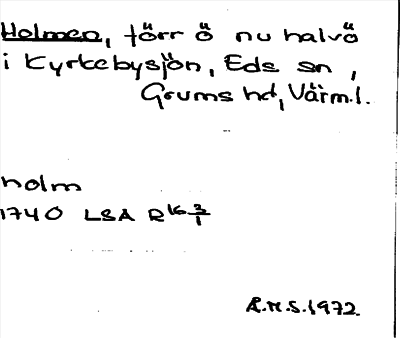 Holmen, förr ö nu halvö
i Kyrkebysjön, Eds sn,
Grums hd, Värml.
holm
1740 LSA R16 3/1
R.M.S. 1972.